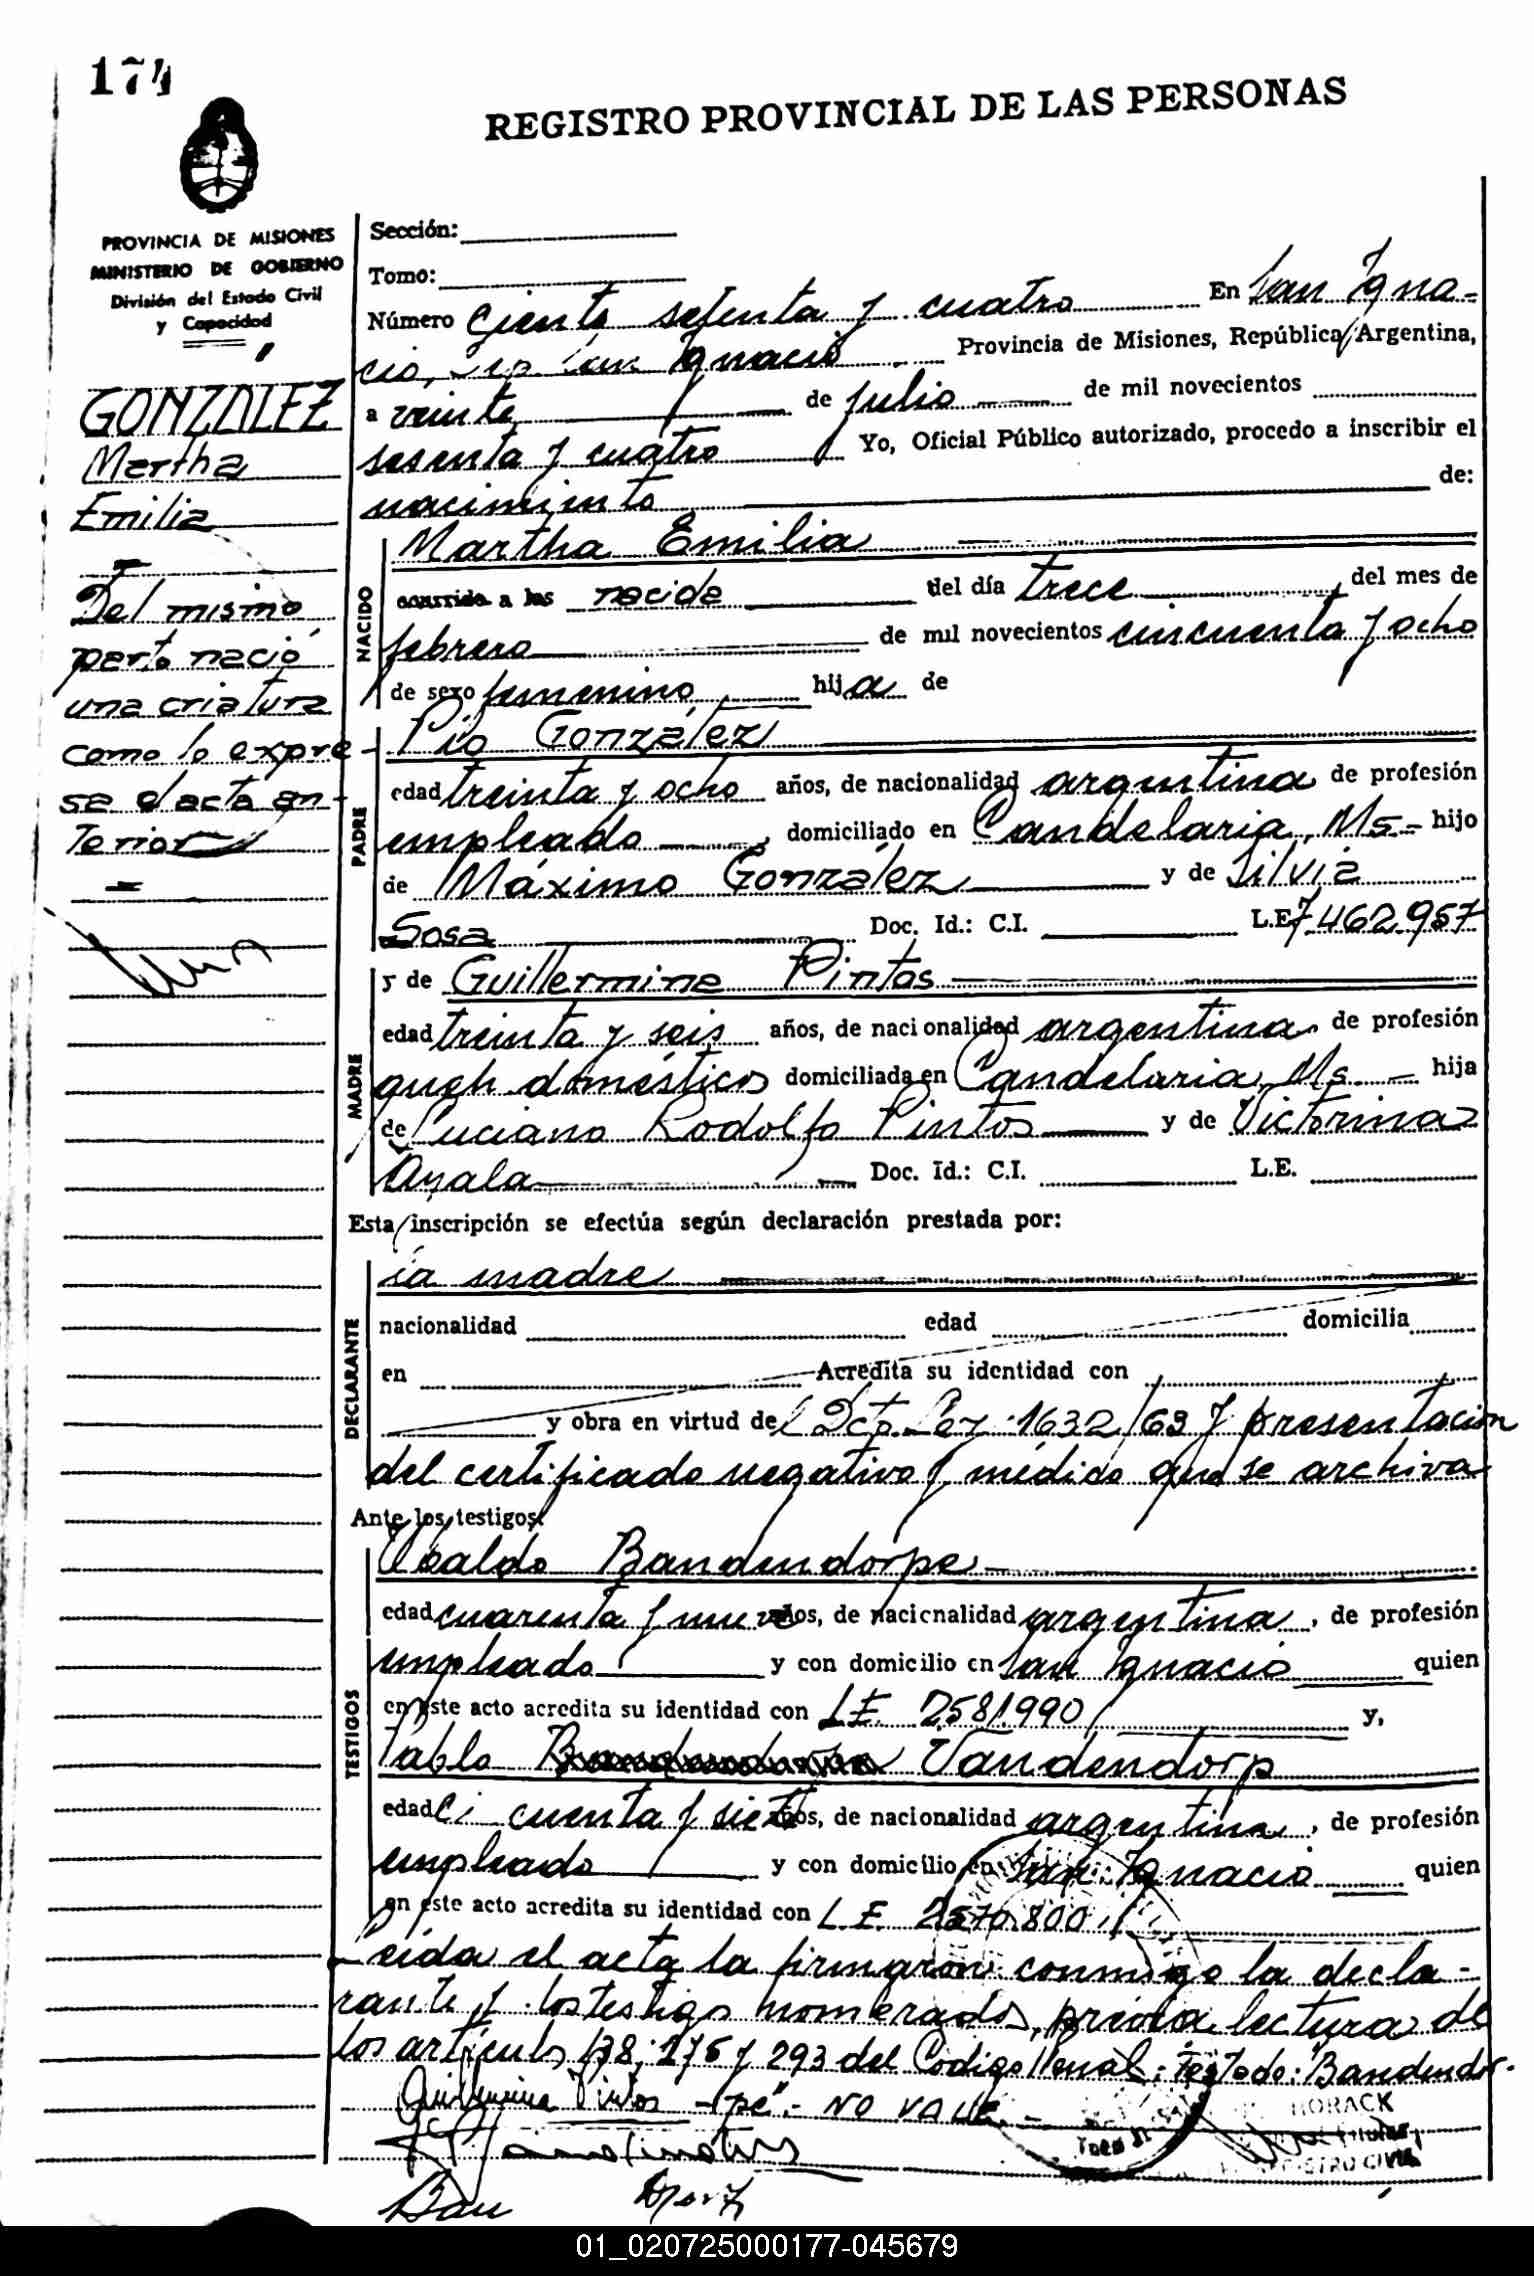 174
REGISTRO PROVINCIAL DE LAS PERSONAS
PROVINCIA DE MISIONES
MINISTERIO DE GOBIERNO
División del Estado Civil
y Capacidad
GONZALEZ
Martha
Emilia
Del mismo
parto nació
una criatura
como lo expre-
sa el acta an-
terior
Sección:
Tomo:
Número Ciento setenta y cuatro En San Igna-
cio, Dep. San Ignacio Provincia de Misiones, República Argentina,
a veinte de julio de mil novecientos
sesenta y cuatro Yo, Oficial Público autorizado, procedo a inscribir el
nacimiento de:
NACIDO
Martha Emilia
ocurrido a las nacida del día trece, del mes de
febrero de mil novecientos cincuenta y ocho
de sexo femenino hija de
PADRE
Pío González
edad treinta y ocho años, de nacionalidad argentina de profesión
empleado, domiciliado en Candelaria, Ms- hijo
de Máximo González y de Silvia
Sosa Doc. Id.: C.I. L.E. 7.462.957
MADRE
y de Guillermina Pintos
edad treinta y seis años, de nacionalidad argentina, de profesión
queh. domésticos domiciliada en Candelaria, Ms.- hija
de Luciano Rodolfo Pintos y de Victorina
Ayala Doc. Id.: C.I. L.E.
Esta inscripción se efectúa según declaración prestada por:
DECLARANTE
la madre
nacionalidad edad domicilia
en Acredita su identidad con
y obra en virtud del Dcto. Ley 1632/63 y presentación
del certificado negativo y médico que se archiva
Ante los testigos:
TESTIGOS
Ubaldo Bandendorpe
edad cuarenta y nueve años, de nacionalidad argentina, de profesión
empleado y con domicilio en San Ignacio quien
en este acto acredita su identidad con L.E. 2581990 y,
Pablo Vandendorp
edad cincuenta y siete años, de nacionalidad argentina, de profesión
empleado y con domicilio en San Ignacio quien
en este acto acredita su identidad con L.E. 2570.800
Leída el acta la firmaron conmigo la decla-
rante y los testigos nombrados, previa lectura de
los artículos 138, 275 y 293 del Código Penal: Testado: Bandendor-
Guillermina Pintos -pe".- NO VALE.-
HORACK
REGISTRO CIVIL
01_020725000177-045679